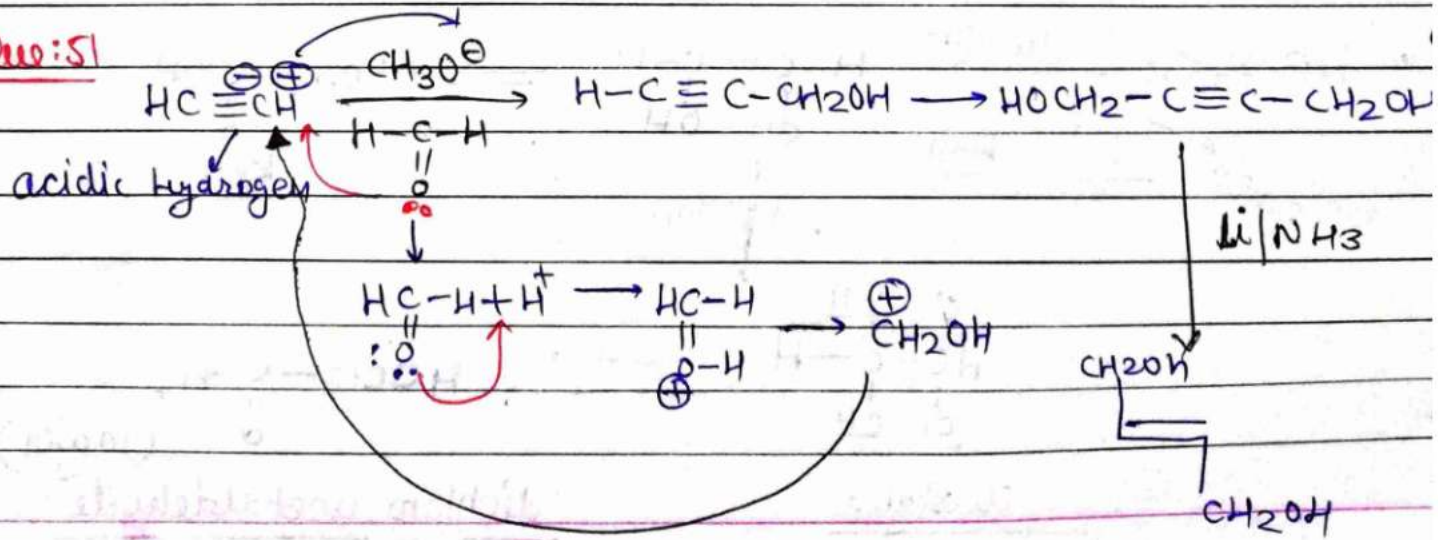 Que:51
HC ≡ CH ⊖ ⊕ CH3O⊖ H-C≡C-CH2OH → HOCH2-C≡C-CH2OH
H-C-H
acidic hydrogen O
Li/NH3
HC-H+H+ → HC-H → ⊕ CH2OH
:O: O-H ⊕
CH2OH
CH2OH